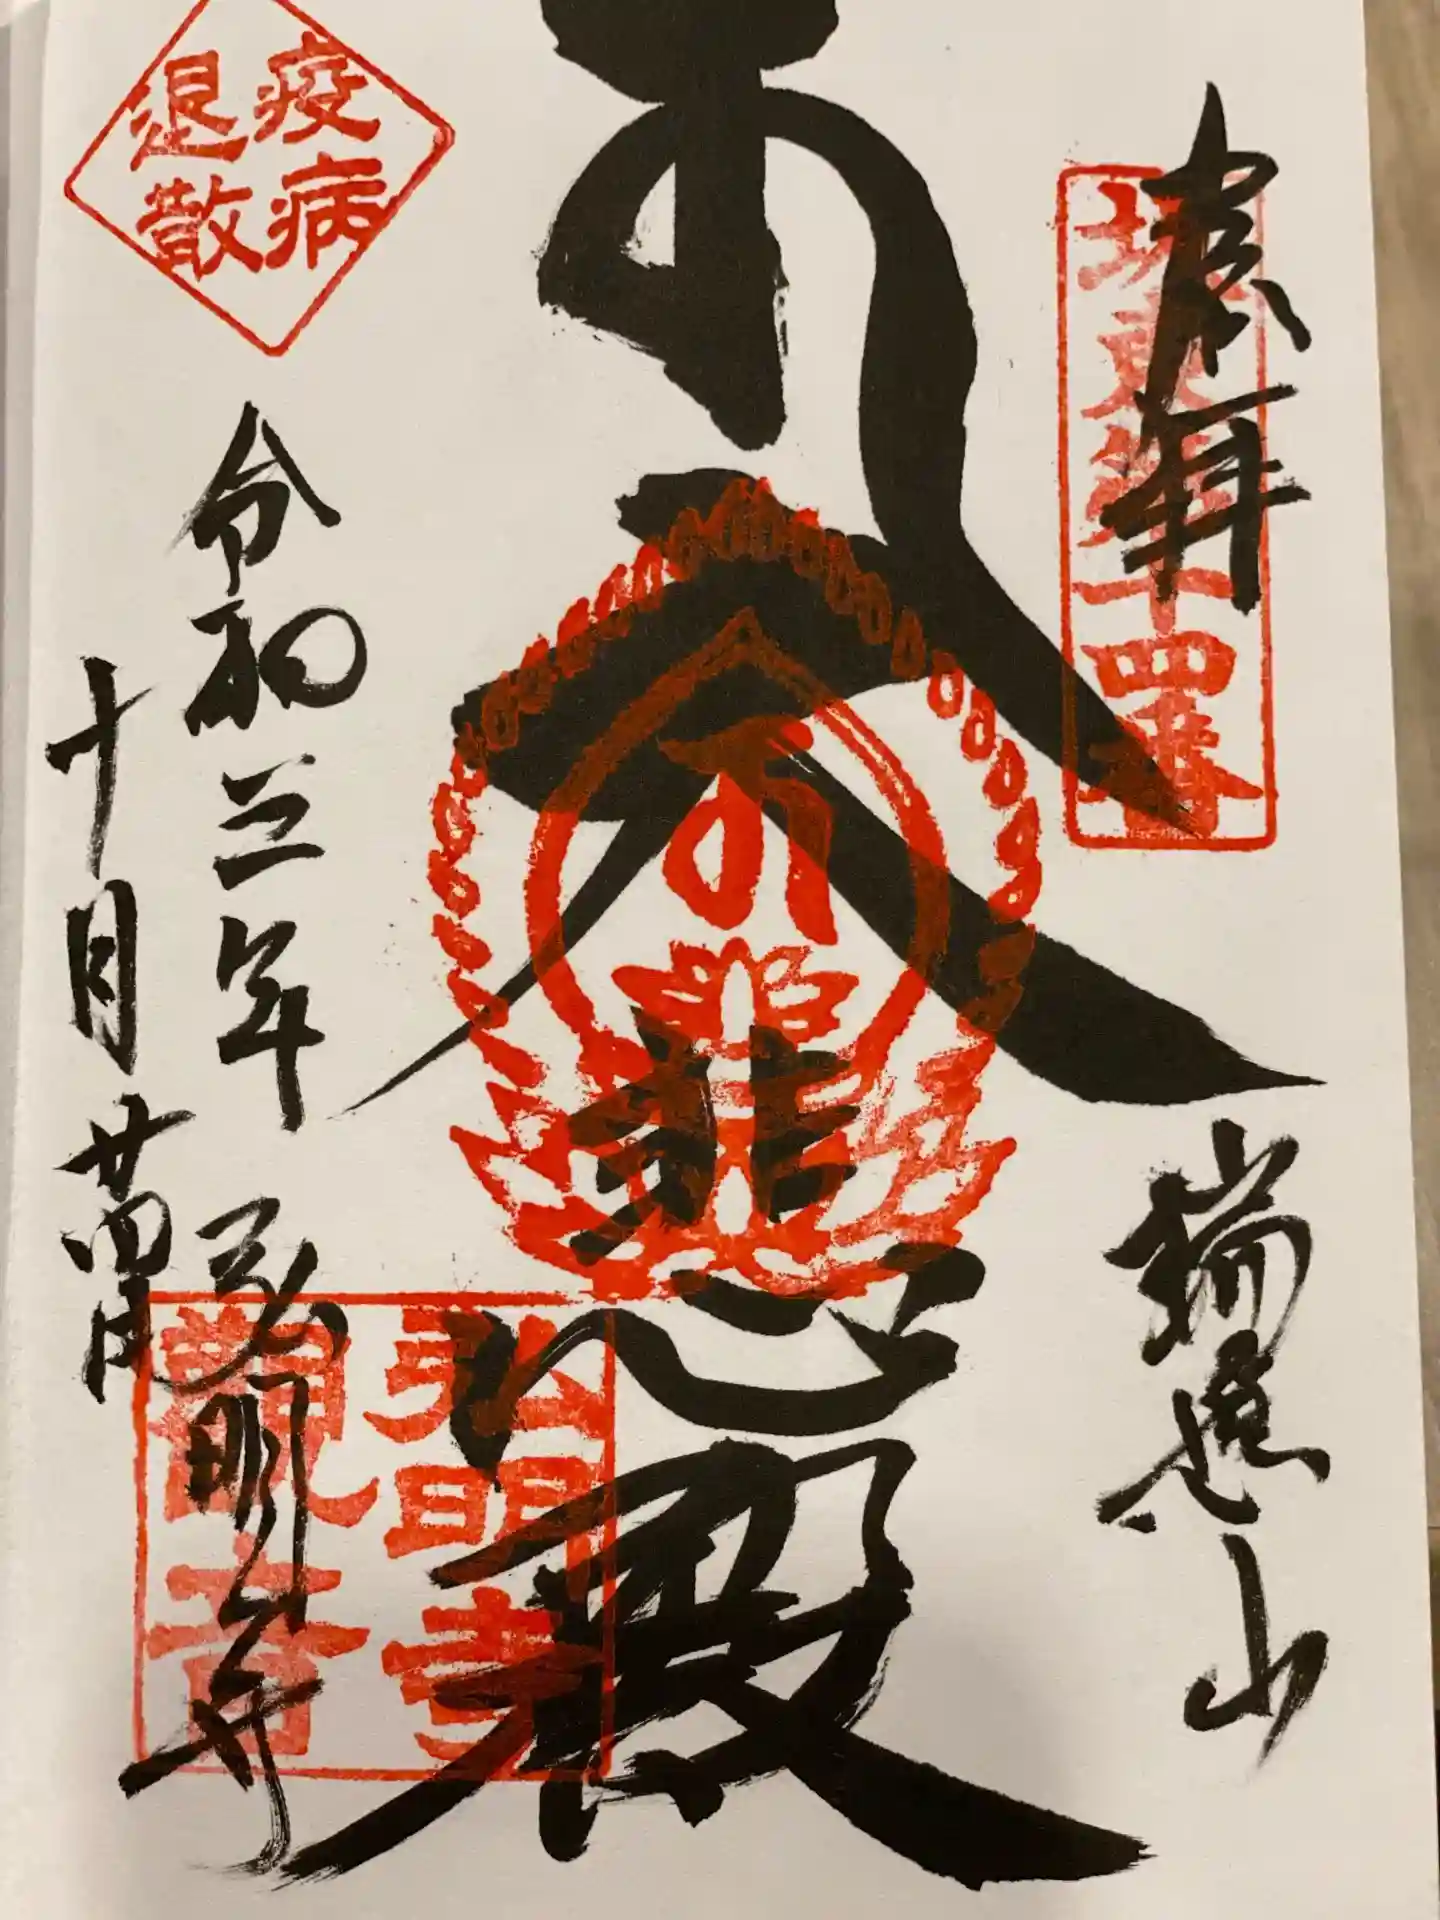 奉拝
坂東第十四番
瑞應山
大悲殿
疫病
退散
令和三年
十月廿四日
弘明寺
弘明寺
観音